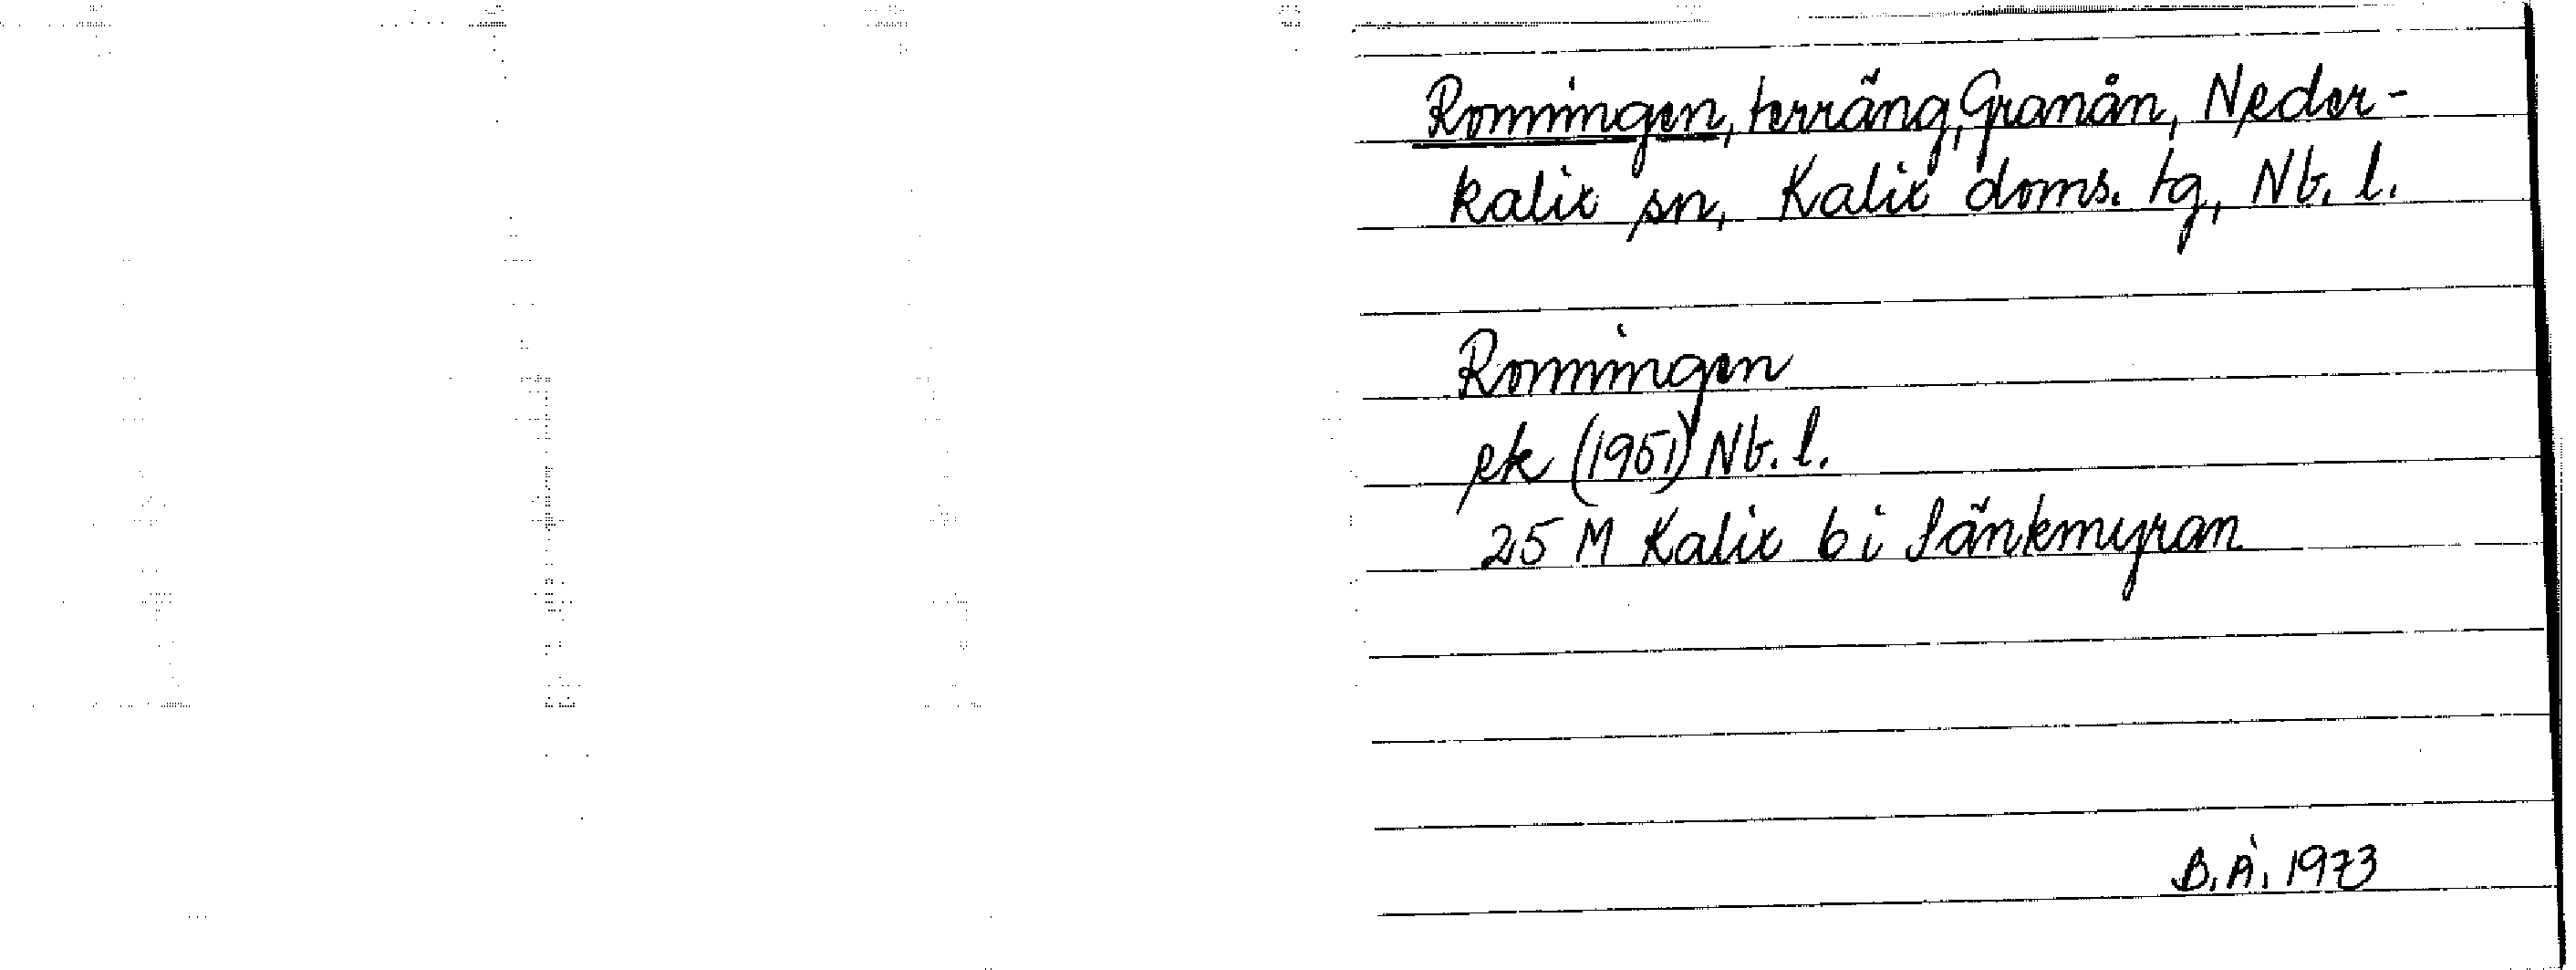 Ronningen, terräng, Granån, Neder-
kalix sn, Kalix doms. tg, Nb. l.
Ronningen
ek (1951) Nb. l.
25 M Kalix 6 i Sänkmyran
B. Å. 1973